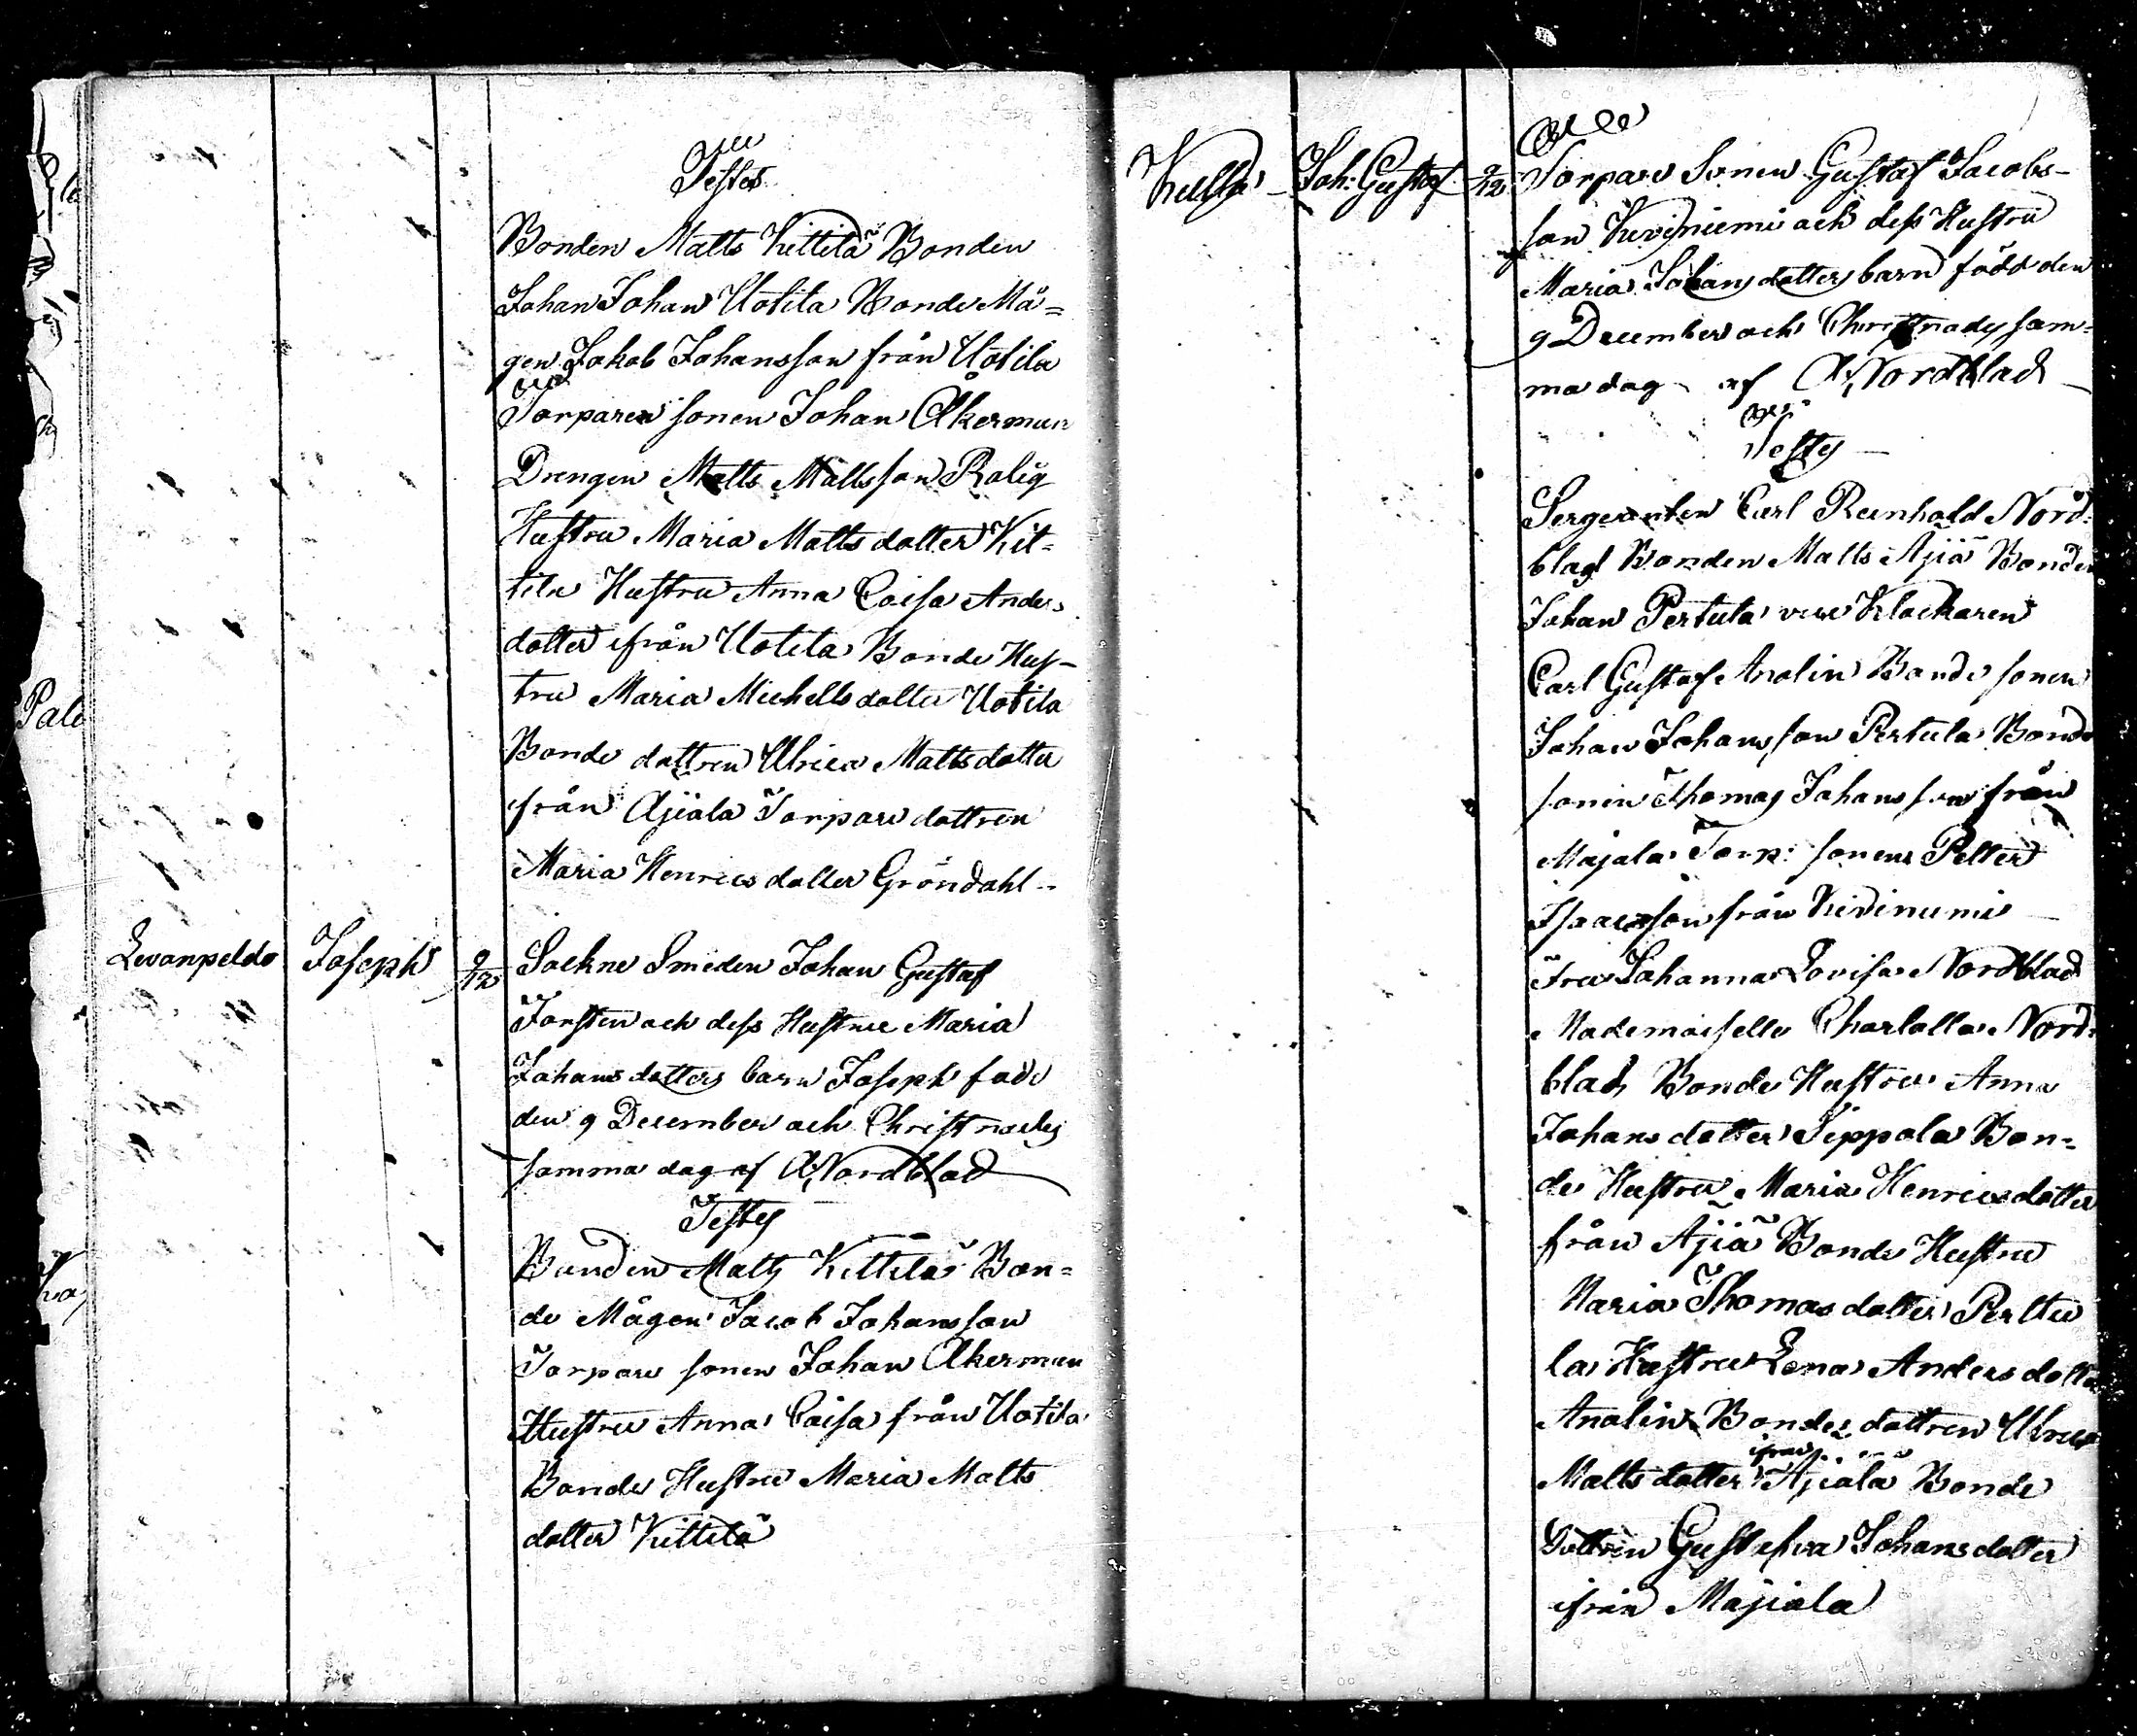 Testes
Bonden Matts Kittilä Bonden
Johan Johan Uotila Bonde Må=
gen Jakob Johansson från Uotila
Torparen sonen Johan Åkerman
Drengen Matts Mattsson Rolig
Hustru Maria Matts dotter Kit=
tila Hustru Anna Caisa Anders
dotter ifrån Uotila Bonde Hus-
tru Maria Michells dotter Uotila
Bonde dottren Ulrica Matts dotter
ifrån Äjiälä Torpare dottren
Maria Henrics dotter Gröndahl
Levanpeldo Joseph 9/12 Sockne Smeden Johan Gustaf
Forsten och dess Hustru Maria
Johans dotters barn Joseph född
den 9 December och Christnades
samma dag af A Nordblad
Testes
Bonden Matts Kittilä Bon=
de Mågen Jacob Johansson
Torpare sonen Johan Åkerman
Hustru Anna Caisa från Uotila
Bonde Hustru Maria Matts
dotter Kittilä
Kulla Joh: Gustaf 9/12 Torpare Sonen Gustaf Jacobs-
son Kiviniemi och dess Hustru
Maria Johans dotters barn född den
9 December och Christnades sam=
ma dag af A Nordblad
Testes
Sergeanten Carl Reinhold Nord=
blad Bonden Matts Äjiä Bonden
Johan Pertula vice Klockaren
Carl Gustaf Anolin Bonde sonen
Johan Johansson Pertula Bonde
sonen Thomas Johansson från
Majala Torp: sonen Petter
Isaacsson från Kiviniemi
Fru Johanna Lovisa Nordblad
Mademoiselle Charlotta Nord=
blad Bonde Hustru Anna
Johans dotter Seppala Bon=
de Hustru Maria Henrics dotter
från Äjiä Bonde Hustru
Maria Thomas dotter Pertu
la Hustru Lena Anders dotter
Anolin Bonde dottren Ulrica
ifrån
Matts dotter Äjiälä Bonde
dottren Gustafva Johans dotter
ifrån Majiala
Pale